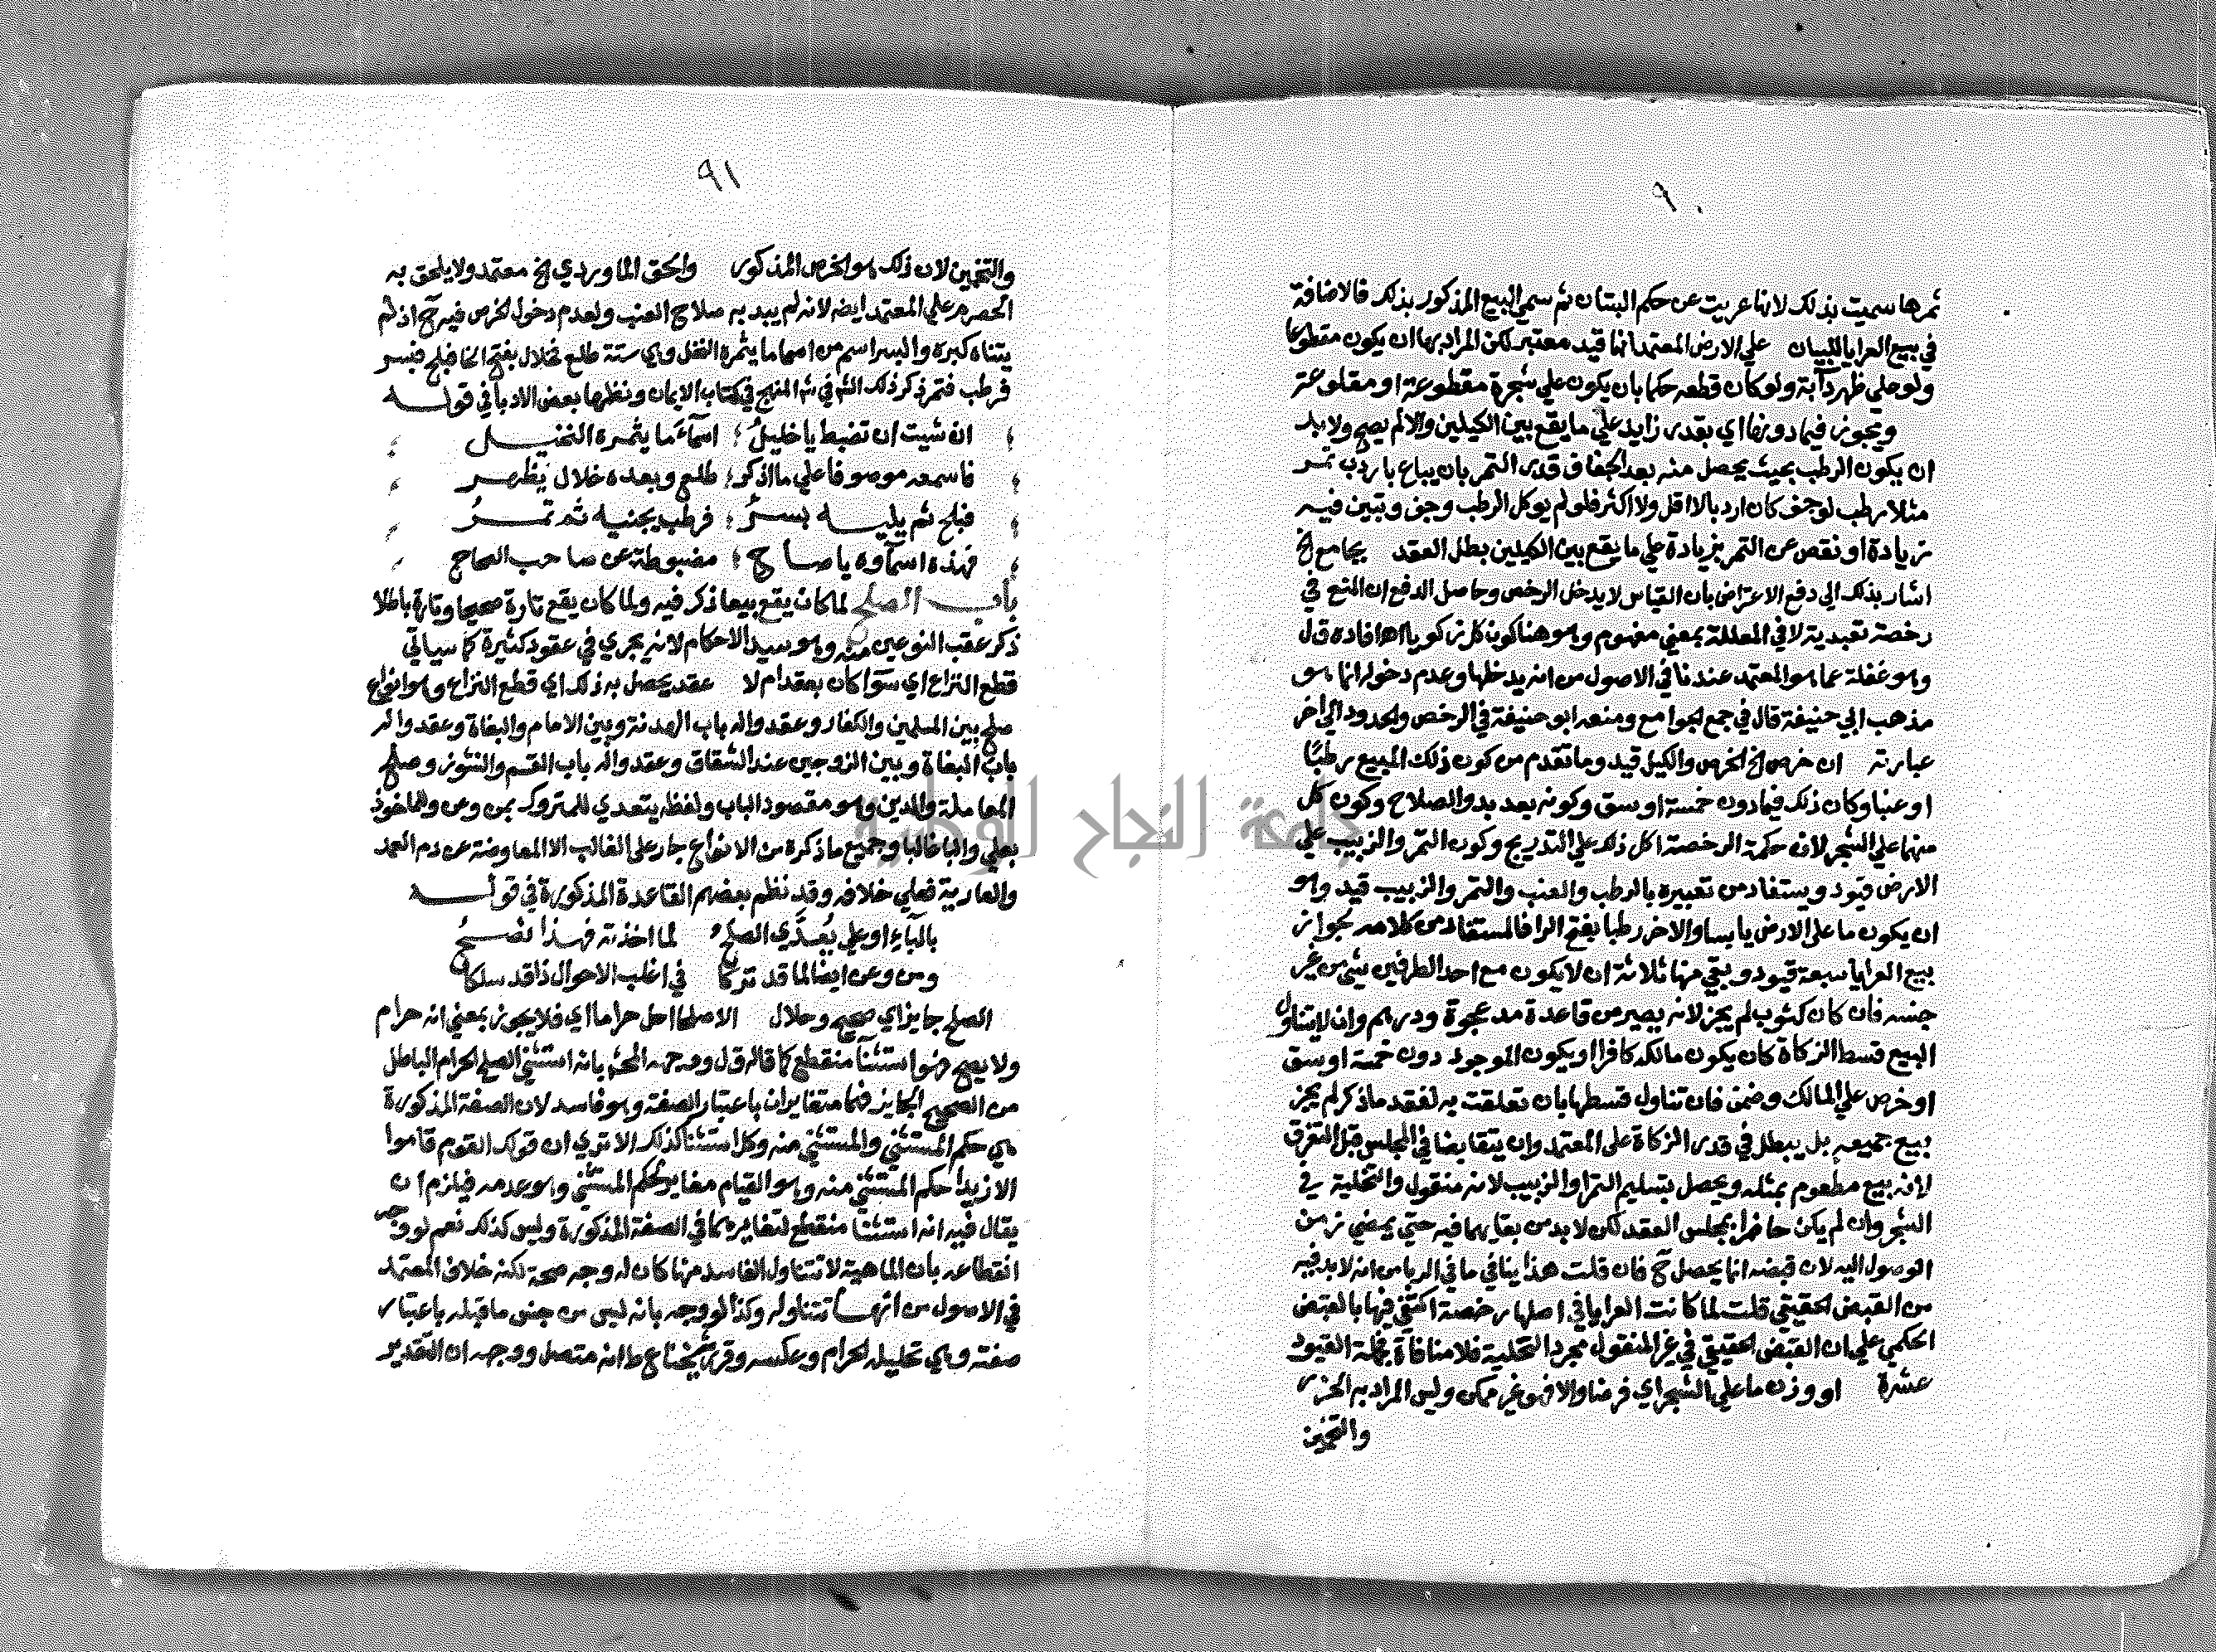 ٩٠
ثمرها سميت بذلك لانها عريت عن حكم البستان ثم سمي البيع المذكور بذلك فالاضافة
في بيع العرايا للبيان علي الارض المعتمد انها قيد معتبر لكن المراد بها ان يكون مقطوعا
ولو علي ظهر دآبة ولو كان قطعه حكما بان يكون علي شجرة مقطوعة او مقلوعة
ويجوز فيما دونها اي بقدر زايد علي ما يقع بين الكيلين والا لم يصح ولا بد
ان يكون الرطب بحيث يحصل منه بعد الجفاف قدر التمر بان يباع باردب تمر
مثلا رطب لو جف كان اردبا لا اقل ولا اكثر فلو لم يوكل الرطب وجف وتبين فيه
زيادة او نقص عن التمر بزيادة علي ما يقع بين الكيلين بطل العقد بجامع الخ
اشار بذلك الي دفع الاعتراض بان القياس لا يدخل الرخص وحاصل الدفع ان المنع في
رخصة تعبدية لا في المعللة بمعني مفهوم وهو هنا كون كل زكويا اهـ افاده ق ل
وهو غفلة عما هو المعتمد عندنا في الاصول من انه يدخلها وعدم دخوله انما هو
مذهب ابي حنيفة قال في جمع الجوامع ومنعه ابو حنيفة في الرخص والحدود الي اخر
عبارته ان خرص الخ الخرص والكيل قيد وما تقدم من كون ذلك المبيع رطبًا
او عنبا وكان ذلك فيما دون خمسة اوسق وكونه بعد بدو الصلاح وكون كل
منهما علي الشجر لان حكمة الرخصة اكل ذلك علي التدريج وكون التمر والزبيب علي
الارض قيود ويستفاد من تعبيره بالرطب والعنب والتمر والزبيب قيد وهو
ان يكون ما علي الارض يابسا والاخر رطبا بفتح الرا فالمستفاد من كلامه لجواز
بيع العرايا سبعة قيود وبقي منها ثلاثة ان لا يكون مع احد الطرفين شي من غير
جنسه فان كان كثوب لم يجز لانه يصير من قاعدة مد عجوة ودرهم وان لا يتناول
البيع قسط الزكاة كان يكون مالكه كافرا او يكون الموجود دون خمسة اوسق
او خرص علي المالك وضمن فان تناول قسطها بان تعلقت به لفقد ما ذكر لم يجز
بيع جميعه بل يبطل في قدر الزكاة علي المعتمد وان يتقابضا في المجلس قبل التفرق
لانه بيع مطعوم بمثله ويحصل بتسليم التمر او الزبيب لانه منقول والتخلية في
الشجر وان لم يكن حاضرا بمجلس العقد لكن لا بد من بقايهما فيه حتي يمضي زمن
الوصول اليه لان قبضه انما يحصل ح فان قلت هذا ينافي ما في الربا من انه لا بد فيه
من القبض الحقيقي قلت لما كانت العرايا في اصلها رخصة اكتفي فيها بالقبض
الحكمي علي ان القبض الحقيقي في غير المنقول مجرد التخلية فلا منافاة فجملة القيود
عشرة او وزن ما علي الشجر اي فرضا والا فهو غير ممكن وليس المراد به الحزر
والتخمين
٩١
والتخمين لان ذلك هو الخرص المذكور والحق الماوردي الخ معتمد ولا يلحق به
الحصرم علي المعتمد ايضه لانه لم يبد به صلاح العنب ولعدم دخول الخرص فيه ح اذ لم
يتناه كبره والبسر اسم من اسما ما يثمره النخل وهي ستة طلع فخلال بفتح الخا فبلح فبسر
فرطب فتمر ذكر ذلك الش في ش المنهج في كتاب الايمان ونظمها بعض الادبا في قوله
ان شيت ان تضبط يا خليلُ ؛ اسمآءَ ما يثمره النخيل
فاسمعه موصوفا علي ما اذكر ؛ طلع وبعده خلال يظهر
فبلح ثم يليه بسرُ ؛ فرطب يجنيه ثم تمرُ
فهذه اسمآوه يا صاح ؛ مضبوطة عن صاحب الصحاح
باب الصلح لما كان يقع بيعا ذكر فيه ولما كان يقع تارة صحيحا وتارة باطلا
ذكر عقب النوعين منه وهو سيد الاحكام لانه يجري في عقود كثيرة كما سياتي
قطع النزاع اي سوآ كان بعقد ام لا عقد يحصل به ذلك اي قطع النزاع وهو انواع
صلح بين المسلمين والكفار وعقدوا له باب الهدنة وبين الامام والبغاة وعقدوا له
باب البغاة وبين الزوجين عند الشقاق وعقدوا له باب القسم والنشوز وصلح
المعاملة والدين وهو مقصود الباب ولفظه يتعدي للمتروك بمن وعن وللماخوذ
بعلي والبا غالبا وجميع ما ذكره من الانواع جار علي الغالب الا المعاوضة عن دم العمد
والعارية فعلي خلافه وقد نظم بعضهم القاعدة المذكورة في قوله
بالبآءِ او علي يُعدَّي الصلحُ لما اخذته فهذا نصحُ
ومن وعن ايضا لما قد تركا في اغلب الاحوال ذا قد سلكا
الصلح جايز اي صحيح وحلال الا صلحا احل حراما اي فلا يجوز بمعني انه حرام
ولا يصح فهو استثنآ منقطع كما قاله ق ل ووجهه المحش بانه استثني الصلح الحرام الباطل
من الصحيح الجايز فهما متغايران باعتبار الصفة وهو فاسد لان الصفة المذكورة
هي حكم المستثني والمستثني منه وكل استثنا كذلك الا تري ان قولك القوم قاموا
الا زيدا حكم المستثني منه وهو القيام مغاير لحكم المستثني وهو عدمه فيلزم ان
يقال فيه انه استثنا منقطع لتغايرهما في الصفة المذكورة وليس كذلك نعم لو وجه
انقطاعه بان الماهية لا تتناول الفاسد منها كان له وجه صحة لكنه خلاف المعتمد
في الاصول من انها تتناوله وكذا لو وجه بانه ليس من جنس ما قبله باعتبار
صفته وهي تحليله الحرام وعكسه وقرر شيخنا ع ط انه متصل ووجهه ان التقدير
جامعة النجاح الوطنية